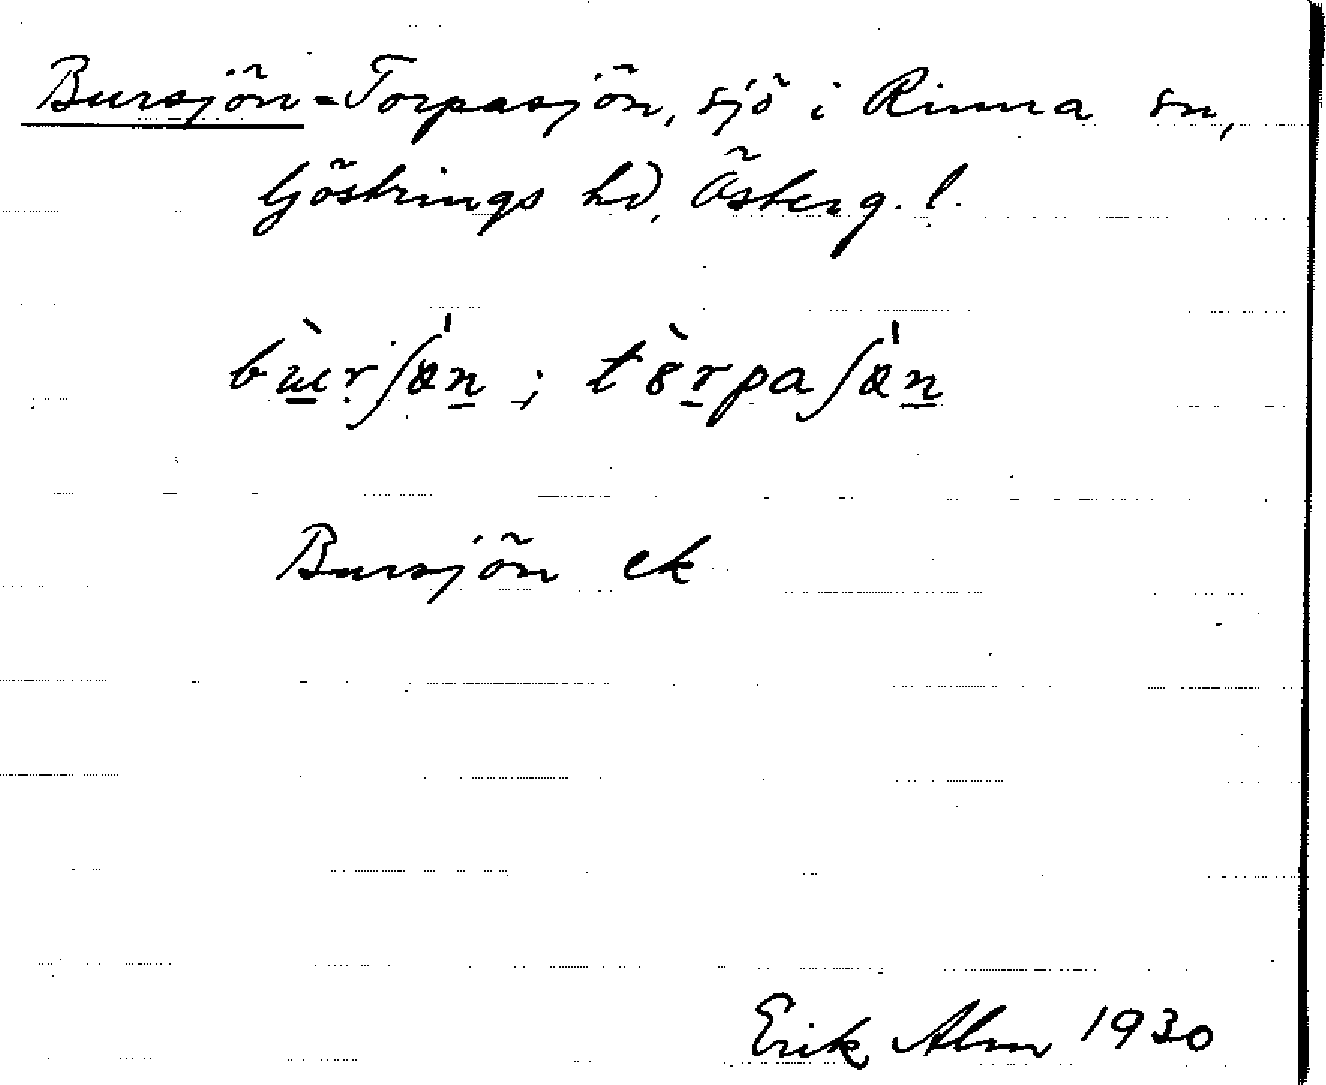 Bursjön = Torpasjön, sjö i Rinna sn,
Göstrings hd, Österg. l.
bùrʃǿn ; tòrpaʃǿn
Bursjön ek
Erik Alm 1930